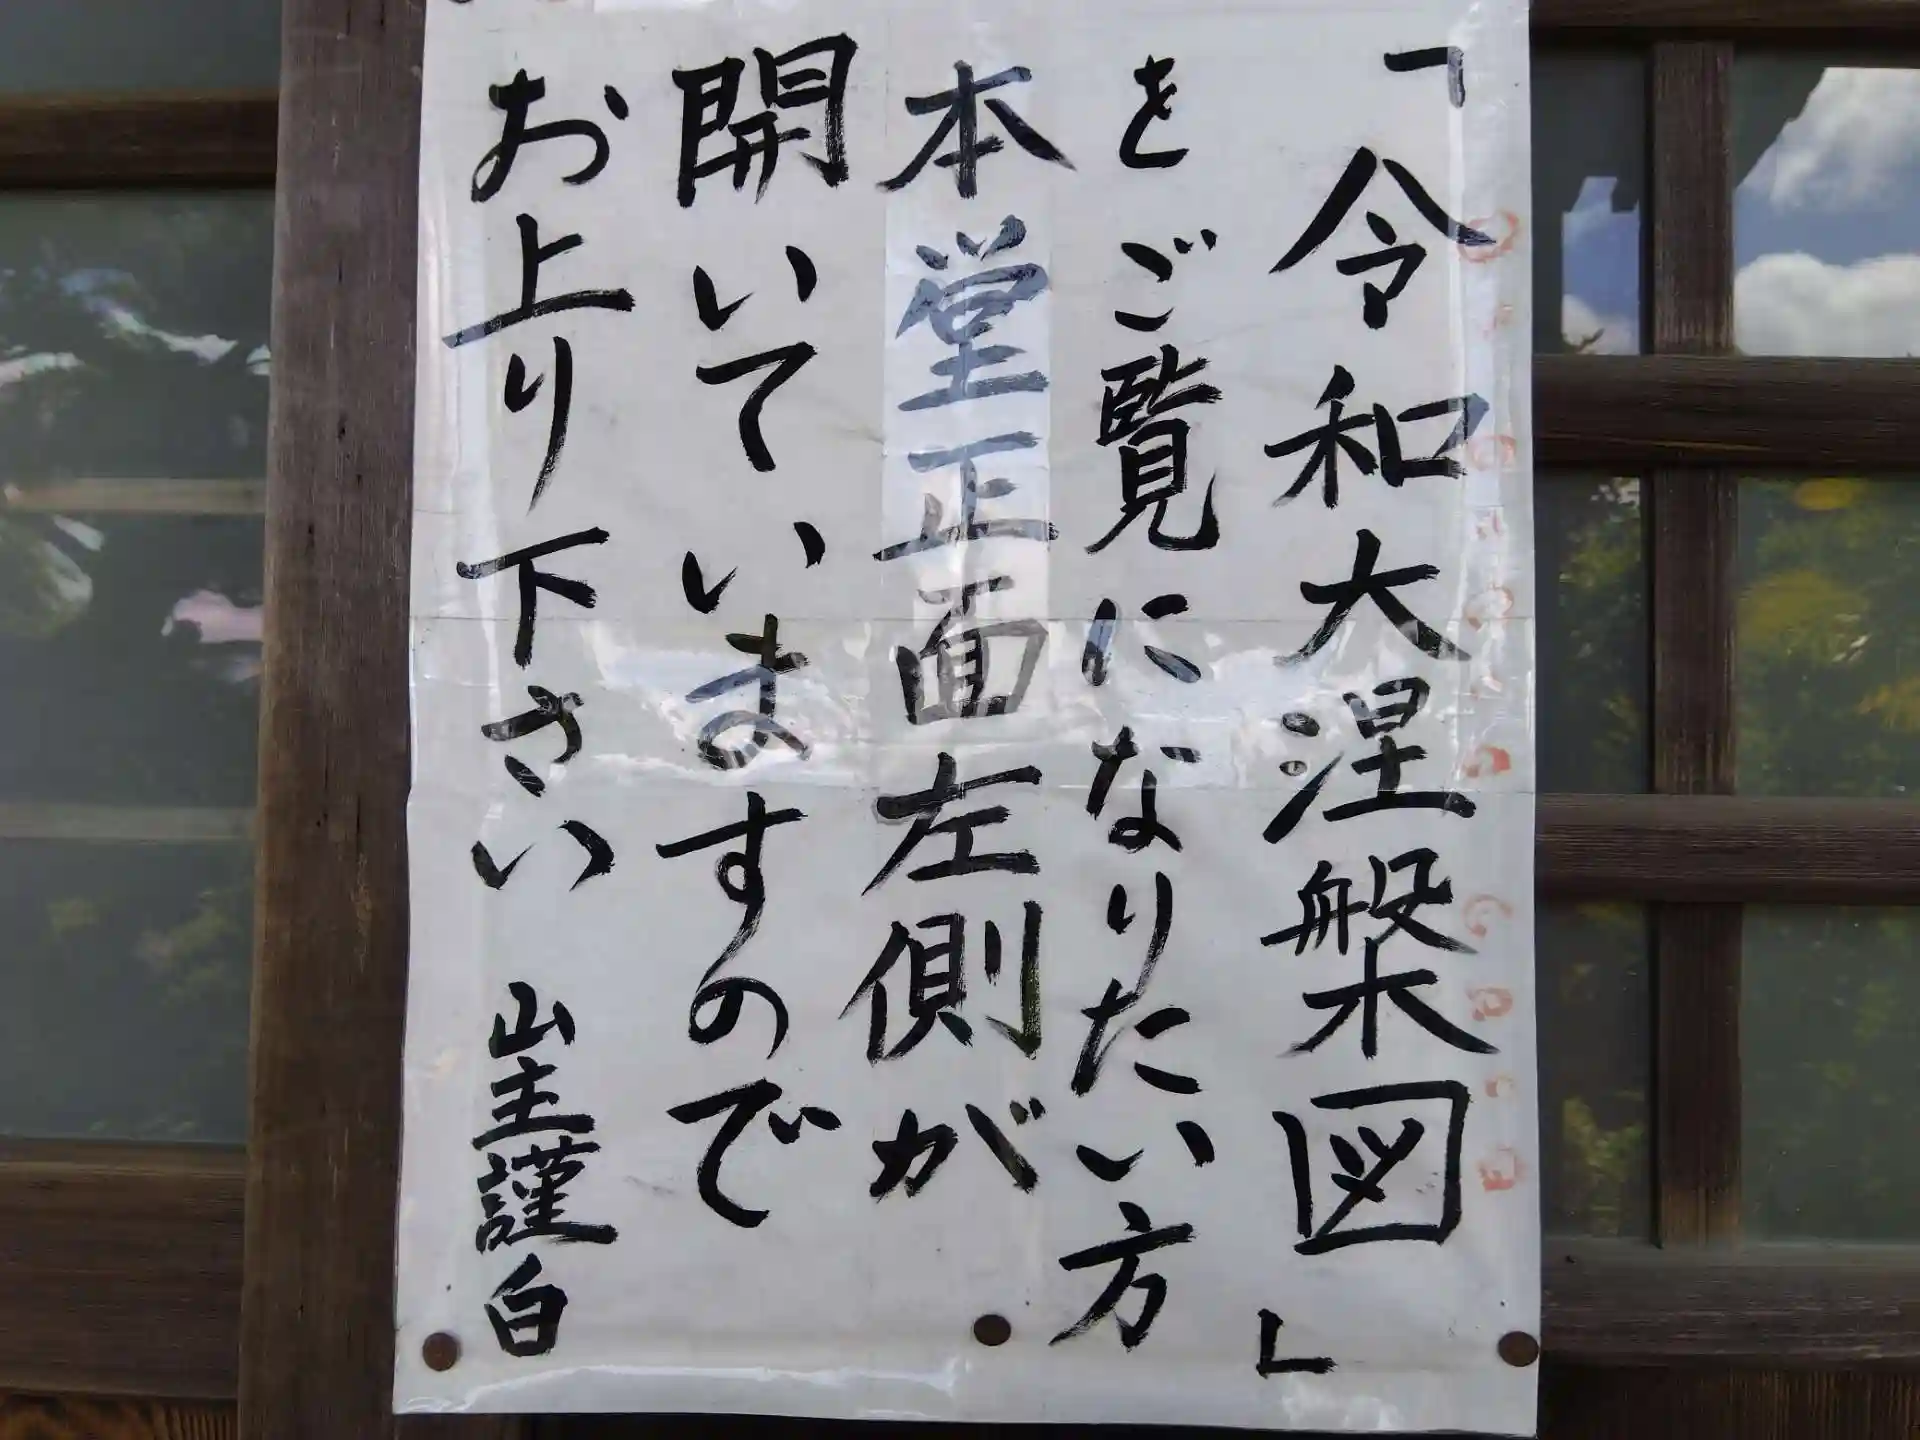 「令和大涅槃図」
をご覧になりたい方
本堂正面左側が
開いていますので
お上り下さい 山主謹白